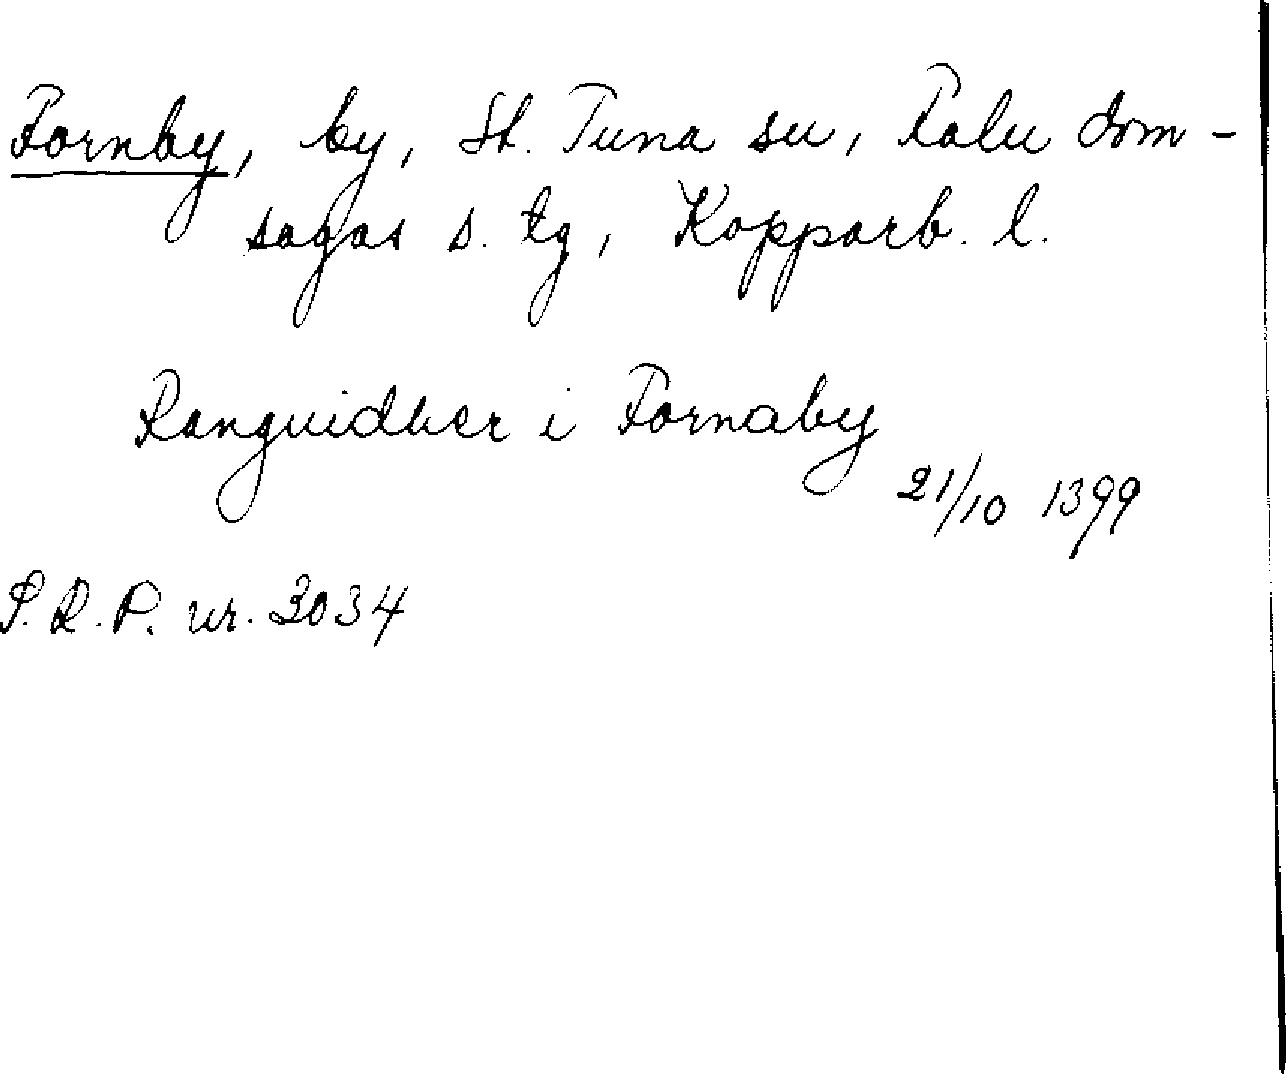 Fornby, by, St. Tuna sn, Falu dom-
sagas s. tg, Kopparb. l.
Ranguidher i Fornaby
21/10 1399
S.R.P. nr. 3034